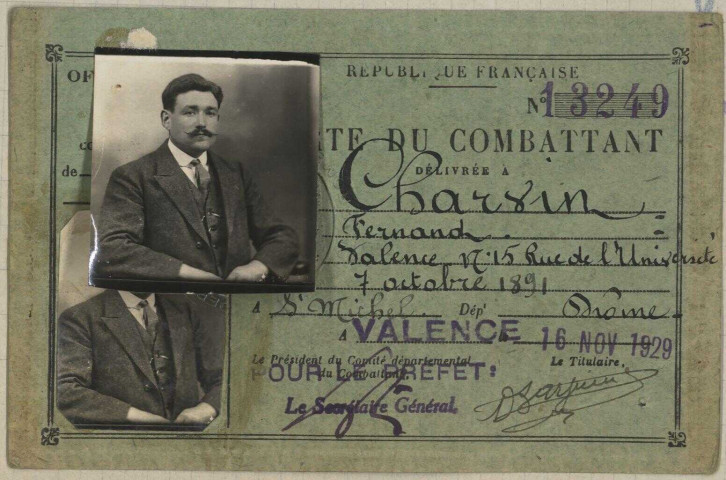 OF
RÉPUBLIQUE FRANÇAISE
N° 13249
TE DU COMBATTANT
DÉLIVRÉE A
de
Charvin
Fernand
Valence, N° 15 Rue de l'Université
7 octobre 1891
A St Michel. Dépt Drôme
A VALENCE 16 NOV 1929
Le Président du Comité départemental
du Combattant,
Le Titulaire,
POUR LE PREFET:
Le Secrétaire Général